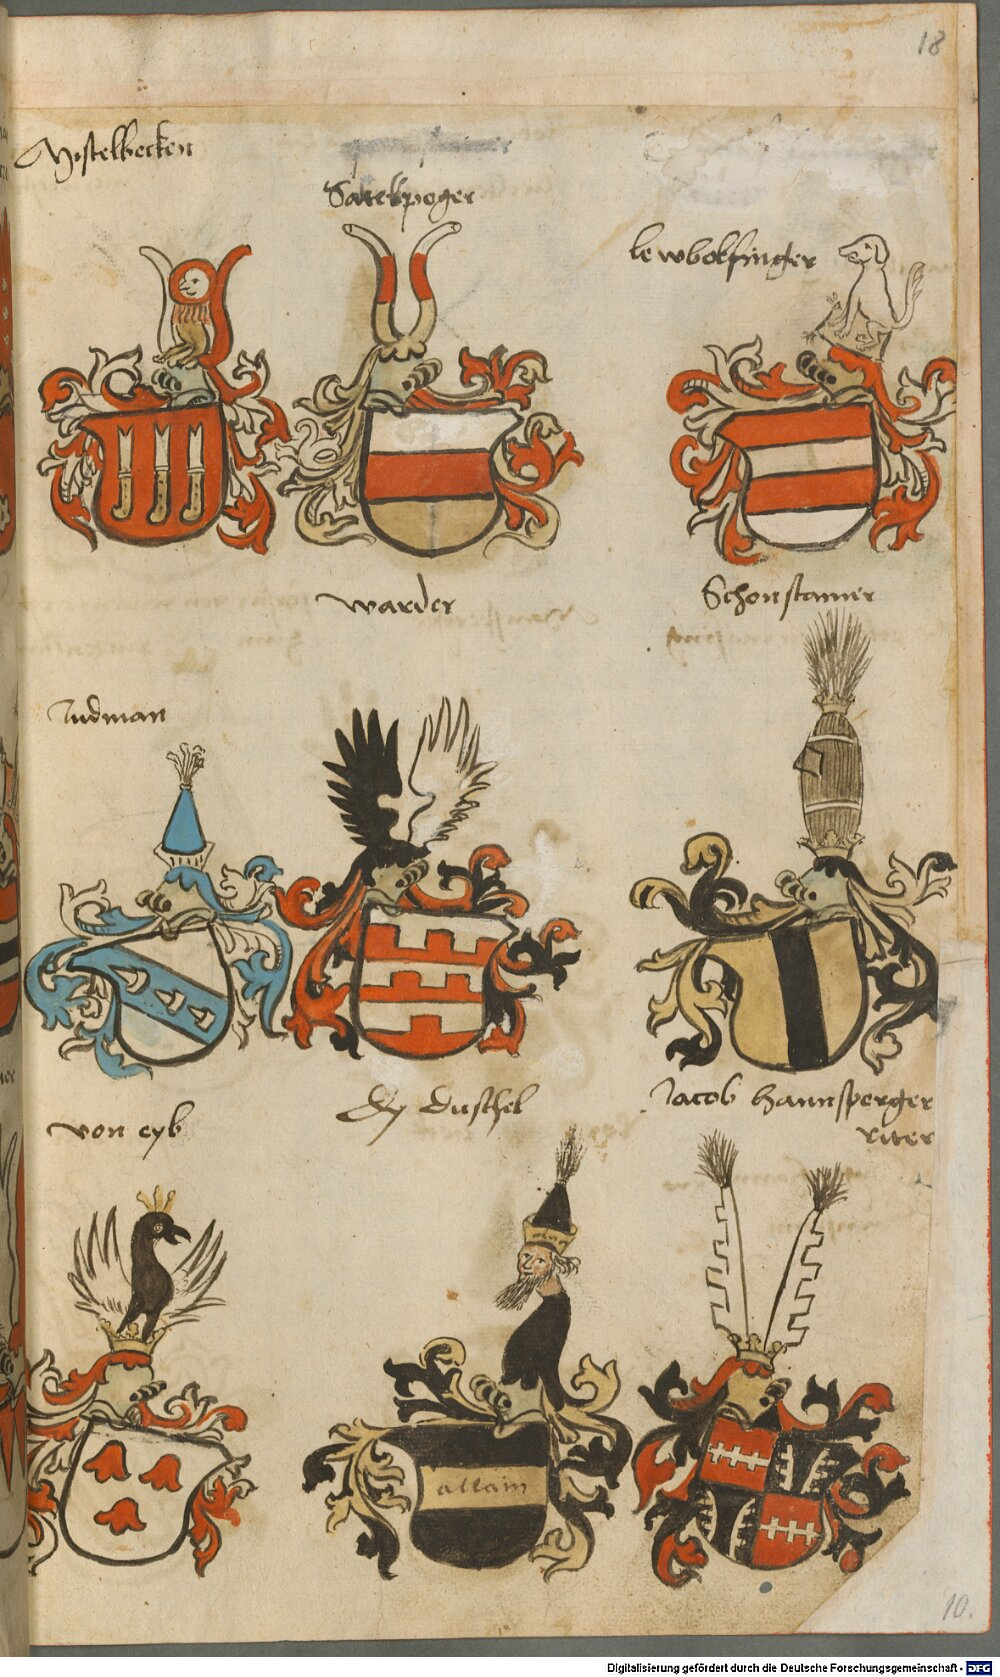 18
Mistelbecken
Sattelpoger
lewbolfinger
warder
Schonstainer
Judman
von eyb
Dy Duschel
Jacob Hannsperger
riter
allain
10.
Digitalisierung gefördert durch die Deutsche Forschungsgemeinschaft - DFG